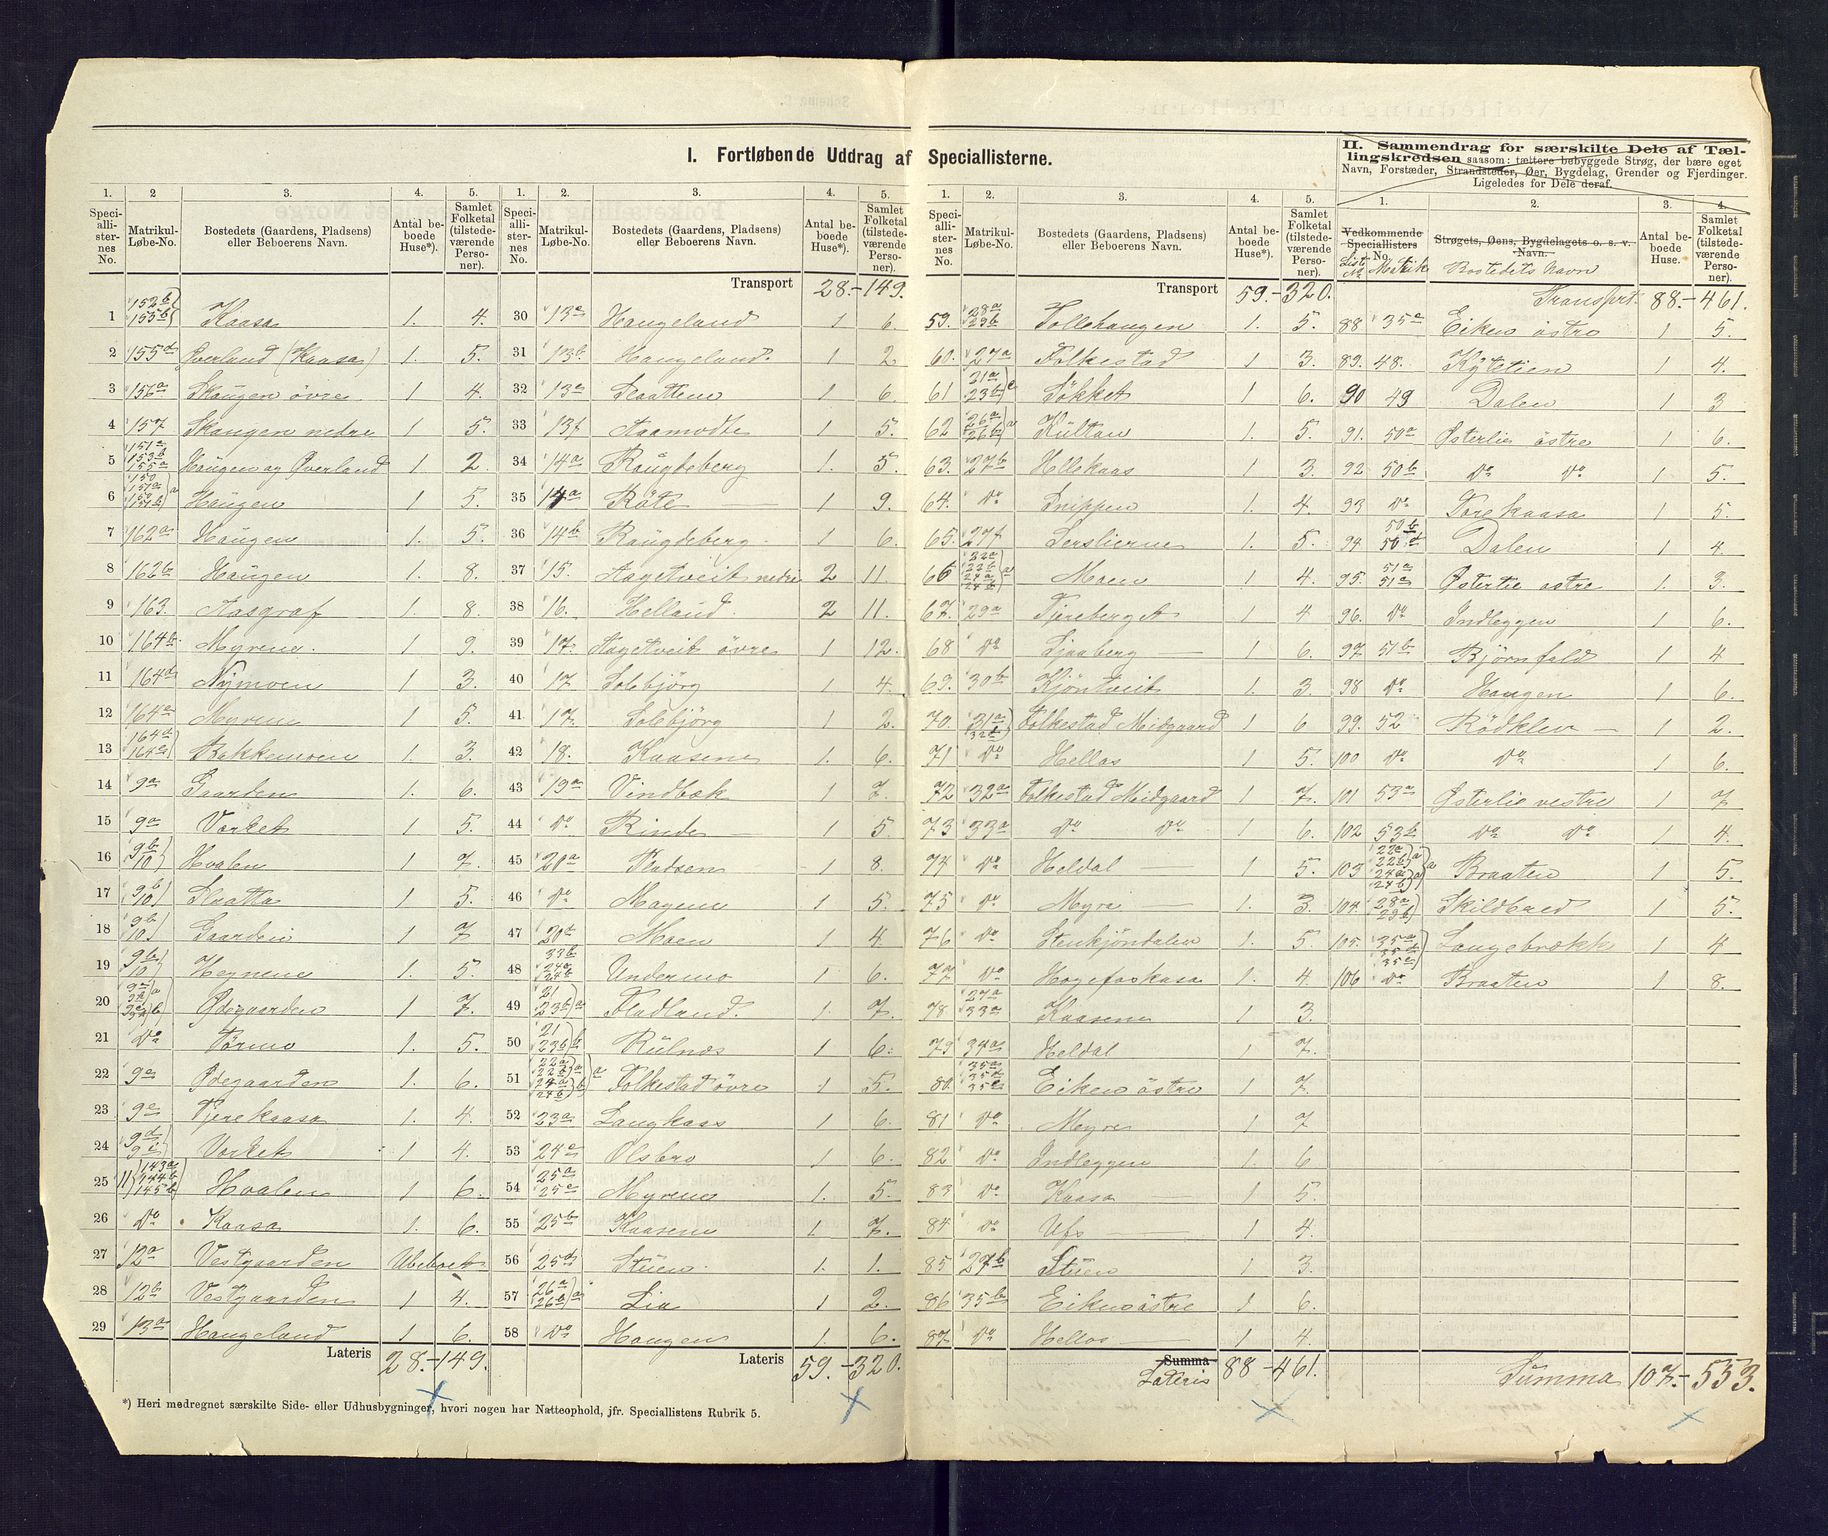 I. Fortløbende Uddrag af Speciallisterne.
1. 2 3. 4. 5.
Speciallisternes No. Matrikul-Løbe-No. Bostedets (Gaardens, Pladsens) eller Beboerens Navn. Antal beboede Huse*). Samlet Folketal (tilstedeværende Personer).
1 152b 153b Kaasa 1. 4.
2 155d Øverland (Kaasa) 1. 5.
3 156a Skaugen övre 1 4.
4 157 Skaugen nedre 1 5.
5 151a 153b 155a Haugen og Øverland 1 2.
6 Haugen 1 5.
7 162a Haugen 1. 5.
8 162b Haugen 1. 8.
9 163. Aasgraf 1. 8.
10 164b Myrene. 1. 9.
11 164d Nymoen 1 3.
12 164e Myrene 1 5.
13 Bakkemoen 1. 3.
14 9a Gaarden 1. 6.
15 9a Vorket 1 5.
16 9b 10 Hvalen 1 7.
17 9b 10 Slaatta 1 5.
18 9b 10 Gaarden 1 7
19 9b 10 Hegnene 1. 5.
20 Ødegaarden 1 7.
21 do Tørmo 1. 5.
22 9e Ødegaarden 1. 6.
23 9e Tjerekaasa 1. 4.
24 Vorket 1 4.
25 11 143a 144b 145b Hvalen 1 6.
26 do Kaasa 1. 6.
27 12a Vestgaarden Ubeboet
28 12b Vestgaarden 1 4.
29 13a Haugeland 1 6.
Lateris 28.-149.
*) Heri medregnet særskilte Side- eller Udhusbygninger, hvori nogen har Natteophold, jfr. Speciallistens Rubrik 5.
1. 2. 3. 4. 5.
Speciallisternes No. Matrikul-Løbe-No. Bostedets (Gaardens, Pladsens) eller Beboerens Navn. Antal beboede Huse*). Samlet Folketal (tilstedeværende Personer).
Transport 28.-149.
30 Haugeland 1 6.
31 13b Haugeland. 1 2
32 13a Slaattene 1 6.
33 13f Aamodte 1 5.
34 14a Raugdeberg 1. 5.
35 14a Röte 1 9.
36 14b Raugdeberg. 1 6.
37 15. Aagetveit nedre 2 11.
38 16. Helland. 2 11.
39 17. Aagetveit övre 1 12.
40 17. Solebjörg 1 4.
41 17. Solebjörg 1 2.
42 18. Kaasene 1. 6.
43 19a Vindbæk 1 7.
44 do Rinde 1 5.
45 20a Pladsen 1 8.
46 do Mogene 1 5.
47 20d Moen 1 4.
48 23b 24a 24b Undermo 1 6.
49 21 23b Fladland. 1. 7.
50 21 23b Rulnes 1 6.
51 22a 22b 24a 24b Folkestad övre 1 5.
52 23a Langkaas 1 6.
53 24e Olsbro 1 6.
54 25a 25e Myrene 1. 5.
55 25b Kaasene 1. 7.
56 25d Stuen. 1. 1.
57 26a 26b Lia 1 2.
58 do Haugen 1. 6.
Lateris 59.-320.
1. 2. 3. 4. 5.
Speciallisternes No. Matrikul-Løbe-No. Bostedets (Gaardens, Pladsens) eller Beboerens Navn. Antal beboede Huse*). Samlet Folketal (tilstedeværende Personer).
Transport 59.-320.
59. 28a 29b Tollehaugen 1. 5.
60. 27a Folkestad 1 3.
61 21a 23b Søkket 1 6.
62 26a 26b Kultan 1. 5.
63. 27b Hellekaas 1 3.
64. do Snippen 1 4
65. 27f Serslierne 1. 5.
66 22a 22b 24a 24b Moen 1 4.
67. 29a Tjereberget 1 4
68 do Ljosberg 1 6.
69. 30b Kjöntveit 1. 3.
70. 31a Folkestad Midgaard 1 6
71 do Hellos 1 5.
72 32a Folkestad Midgaard 1 7.
73 33a do do 1 6.
74 do Heldal 1 5
75 do Myra 1. 3.
76 do Stenkjöndalen 1. 5.
77 do Hogefoskasa 1. 4.
78. 27a 33a Kaasene 1 3.
79 34a Heldal 1 7.
80 35a 35d 35e Eiken östre 1 7.
81 do Myra 1 7
82 do Indleggen 1 6
83 do Kaasa 1 5
84 do Ufs 1 4.
85 27b Stuen 1 3.
86 35b Eiken östre 1 6.
87 do Hellos 1 4.
Summa Lateris 88-461.
II. Sammendrag for særskilte Dele af Tællingskredsen saasom: tættere bebyggede Strøg, der bære eget Navn, Forstæder, Strandsteder, Øer, Bygdelag, Grender og Fjerdinger. Ligeledes for Dele deraf.
1. 2. 3. 4.
Vedkommende Speciallisters No. Strøgets, Øens, Bygdelagets o. s. v. Navn. Antal beboede Huse. Samlet Folketal (tilstedeværende Personer).
List No Matrik Bostedets Navn
Transport 88-461.
88 35a Eiken östre 1 5.
89. 48. Kytetien 1 4.
90 49 Dalen 1 3
91. 50a Østerlie östre 1 6.
92 50b do do 1 5.
93 do Torekaasa 1 5.
94 50b 50d Dalen 1 4.
95. 51a 51a Østerlie östre 1 3.
96. do Indleggen 1 6.
97 51b Björnfald 1 4
98 do Haugen 1 6.
99. 52 Rödklev 1 2.
100 do do 1 6.
101 53a Østerlie vestre 1 7
102 53b do do 1 4.
103 22a 22b 24a 24b Braaten 1 5.
104. 28a 29b Skildbred 1 5.
105. 35a 35d 35e Langebrække 1 4
106 do Braaten 1 8.
Summa 107.-553.